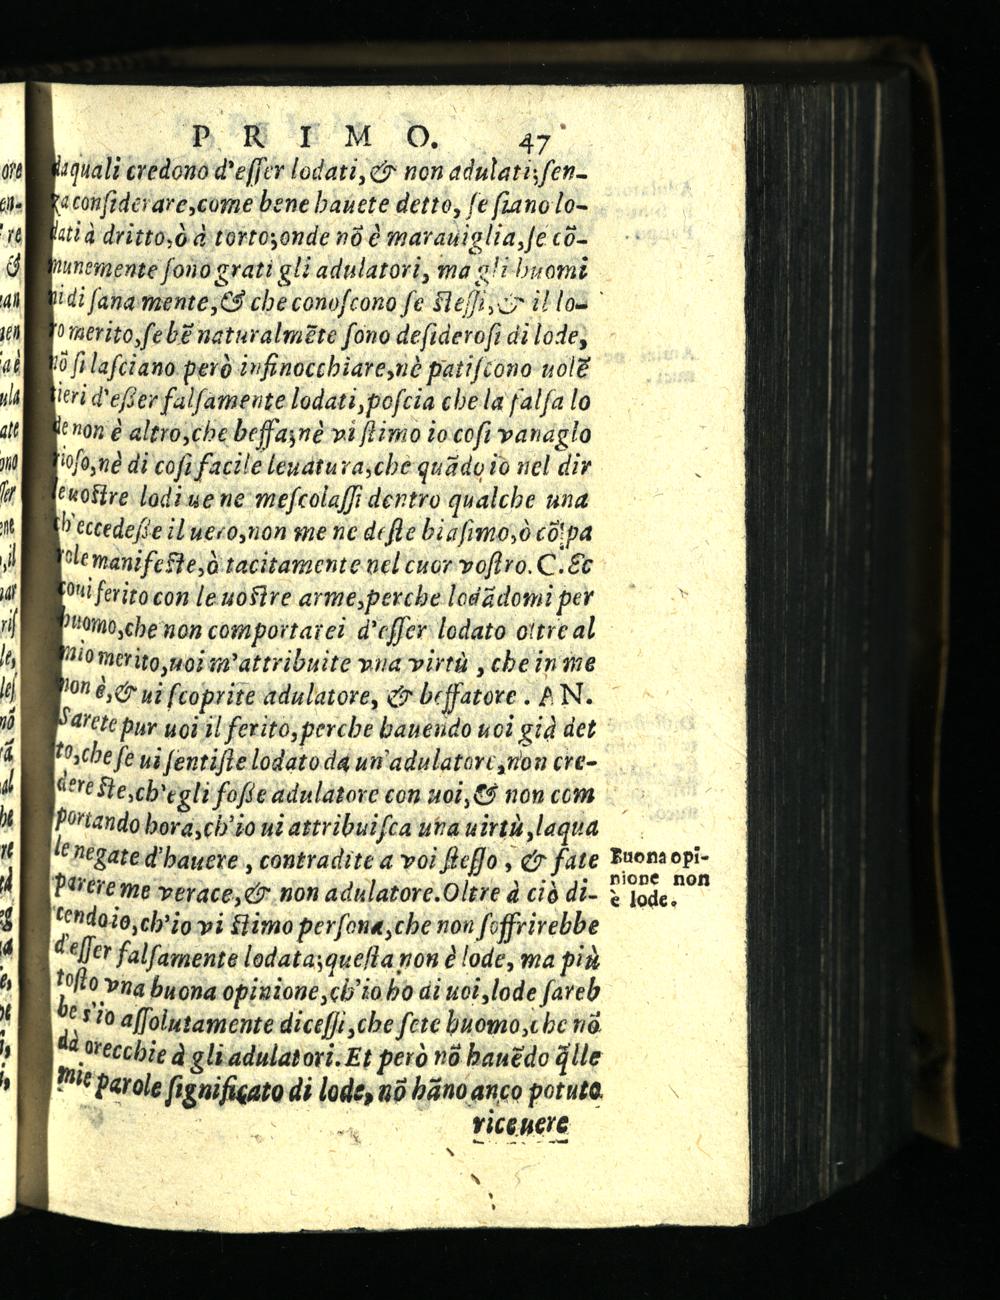 PRIMO. 47
da quali credono d'eſſer lodati, & non adulati; ſen-
za conſiderare, come bene hauete detto, ſe ſiano lo-
dati à dritto, ò à torto; onde nõ è marauiglia, ſe cõ-
munemente ſono grati gli adulatori, ma gli huomi
ni di ſana mente, & che conoſcono ſe ſteſſi, & il lo-
ro merito, ſe bẽ naturalmẽte ſono deſideroſi di lode,
nõ ſi laſciano però infinocchiare, nè patiſcono uolẽ
tieri d'eßer falſamente lodati, poſcia che la falſa lo
de non è altro, che beffa; nè vi ſtimo io coſi vanaglo
rioſo, nè di coſi facile leuatura, che quãdo io nel dir
le uoſtre lodi ue ne meſcolaſſi dentro qualche una
ch'eccedeße il uero, non me ne deſte biaſimo, ò cõ pa
role manifeſte, ò tacitamente nel cuor voſtro. C. Ec
coui ferito con le uoſtre arme, perche lodãdomi per
huomo, che non comportarei d'eſſer lodato oltre al
mio merito, uoi m'attribuite vna virtù, che in me
non è, & ui ſcoprite adulatore, & beffatore. AN.
Sarete pur uoi il ferito, perche hauendo uoi già det
to, che ſe ui ſentiſte lodato da un'adulatore, non cre-
dereſte, ch'egli foße adulatore con uoi, & non com
portando hora, ch'io ui attribuiſca una uirtù, laqua
le negate d'hauere, contradite a voi ſteſſo, & fate
parere me verace, & non adulatore. Oltre à ciò di-
cendo io, ch'io vi ſtimo perſona, che non ſoffrirebbe
d'eſſer falſamente lodata; queſta non è lode, ma più
toſto vna buona opinione, ch'io ho di uoi, lode ſareb
be s'io aſſolutamente diceſſi, che ſete huomo, che nõ
dà orecchie à gli adulatori. Et però nõ hauẽdo q̃lle
mie parole ſignificato di lode, nõ hãno anco potuto
riceuere
Buona opi-
nione non
è lode.